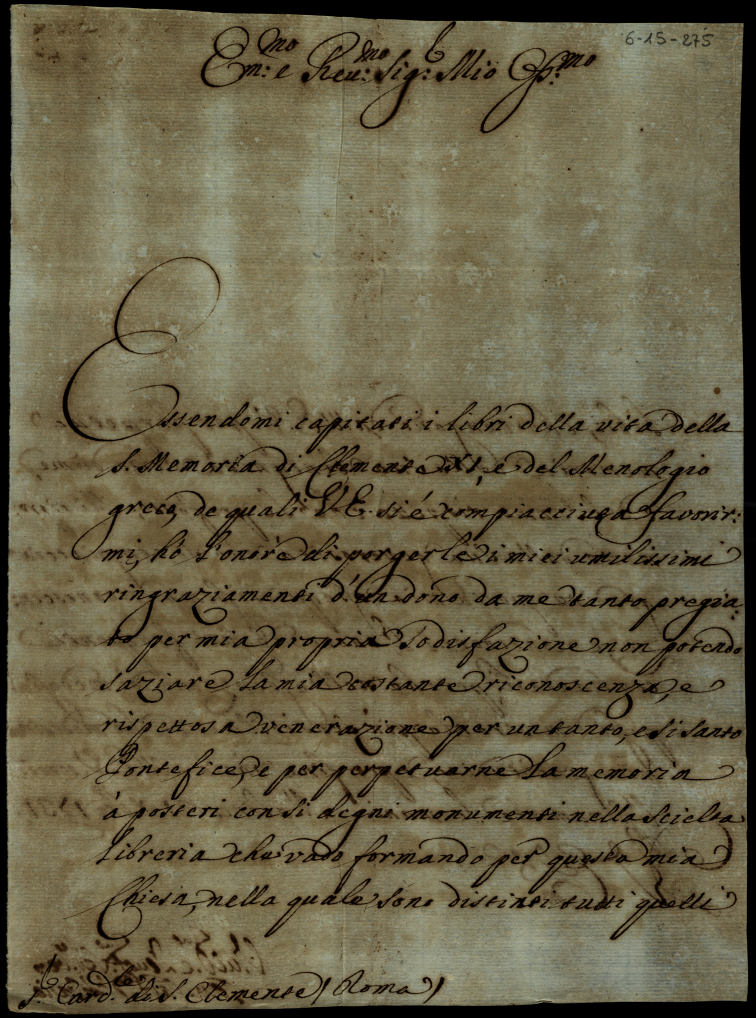 6-15-275
Em:mo e Reu:mo Sig:r Mio Oss:mo
Essendomi capitati i libri della vita della
S. Memoria di Clemente XI, e del Menologio
greco, de quali V.E. si é compiacciuta favorir:
mi, hò l'onore di porgerle i miei umilissimi
ringraziamenti d'un dono da me tanto pregia:
to per mia propria sodisfazione non potendo
saziare la mia costante riconoscenza, e
rispettosa venerazione per un tanto, e si santo
Pontefice, e per perpetuarne la memoria
à posteri con si degni monumenti nella scielta
libreria che vado formando per questa mia
Chiesa, nella quale sono distinti tutti quelli
S.r Card.le di S. Clemente / Roma /